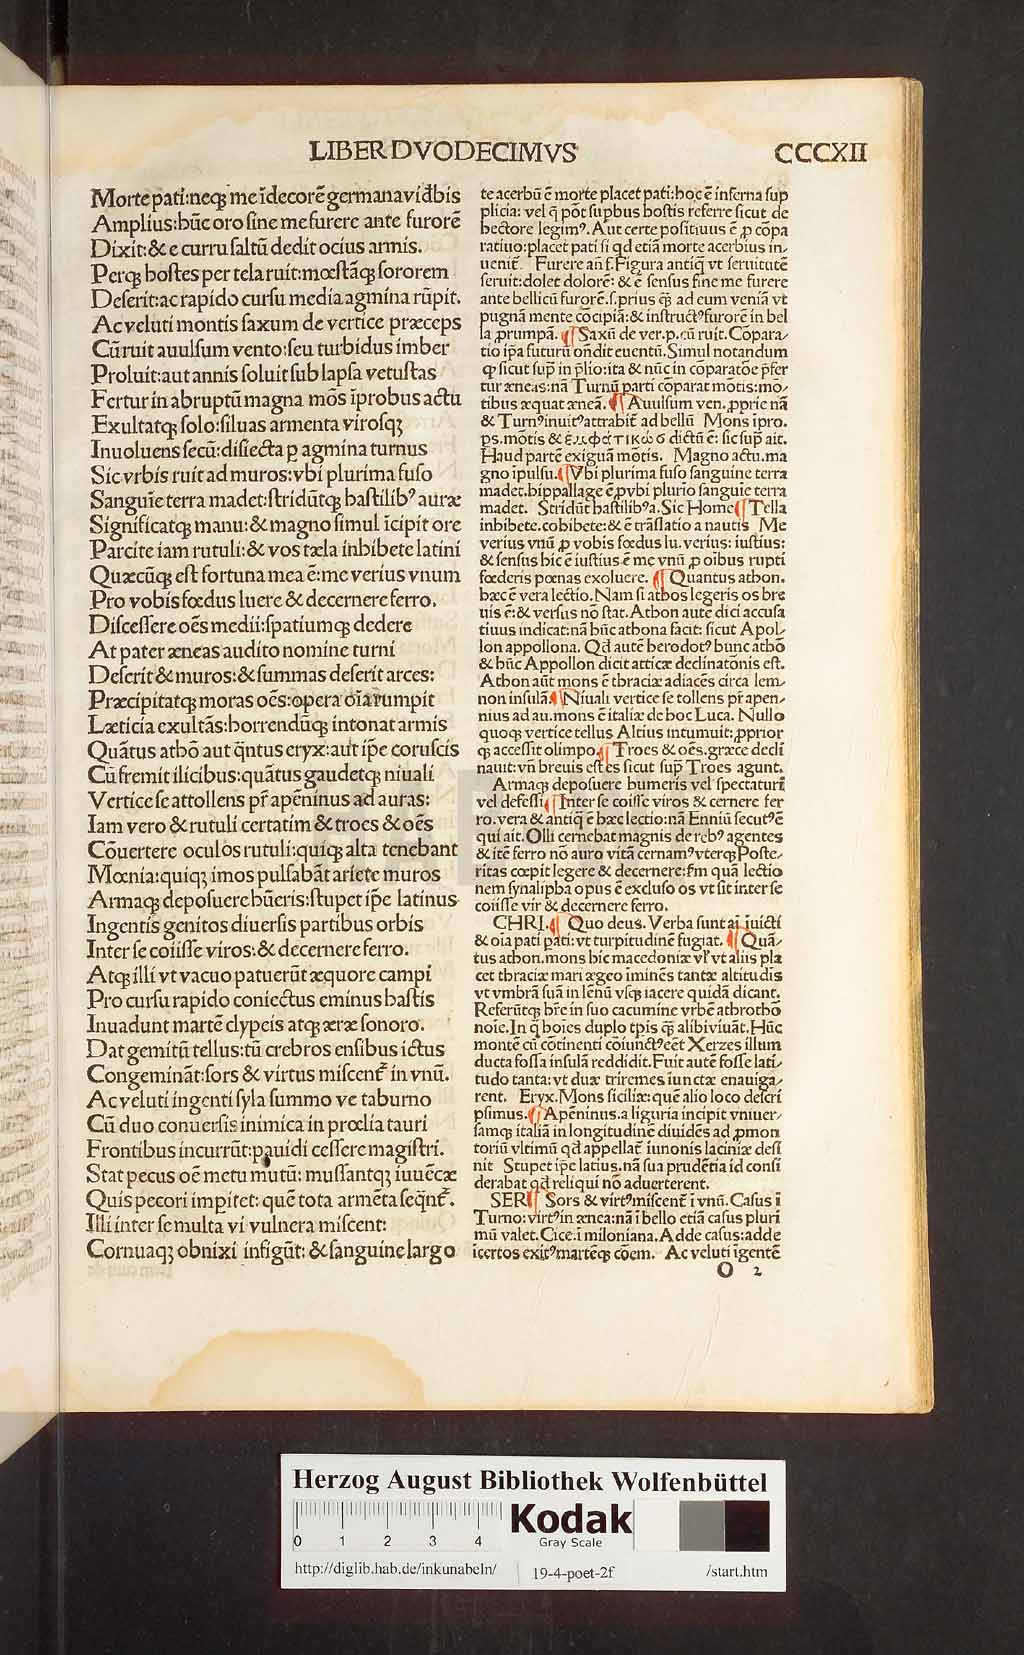 LIBER DVODECIMVS
CCCXII
Morte pati:neqꝫ me īdecorē germana vidb̄is
Amplius:hūc oro sine me furere ante furorē
Dixit:& e curru saltū dedit ocius armis.
Perqꝫ hostes per tela ruit:mœstāqꝫ sororem
Deserit:ac rapido cursu media agmina rūpit.
Ac veluti montis saxum de vertice præceps
Cū ruit auulsum vento:seu turbidus imber
Proluit:aut annis soluit sub lapsa vetustas
Fertur in abruptū magna mōs īprobus actu
Exultatqꝫ solo:siluas armenta virosqꝫ
Inuoluens secū:disiecta p agmina turnus
Sic vrbis ruit ad muros:vbi plurima fuso
Sanguīe terra madet:stridūtqꝫ hastilibꝰ auræ
Significatqꝫ manu:& magno simul īcipit ore
Parcite iam rutuli:& vos tæla inhibete latini
Quæcūqꝫ est fortuna mea ē:me verius vnum
Pro vobis fœdus luere & decernere ferro.
Discessere oēs medii:spatiumqꝫ dedere
At pater æneas audito nomine turni
Deserit & muros:& summas deserit arces:
Præcipitatqꝫ moras oēs:opera oīa rumpit
Læticia exultās:horrendūqꝫ intonat armis
Quātus athō aut q̄ntus eryx:aut ip̄e coruscis
Cū fremit ilicibus:quātus gaudetqꝫ niuali
Vertice se attollens pr̄ apēninus ad auras:
Iam vero & rutuli certatim & troes & oēs
Cōuertere oculos rutuli:quiqꝫ alta tenebant
Mœnia:quiqꝫ imos pulsabāt ariete muros
Armaqꝫ deposuere hūeris:stupet ip̄e latinus
Ingentis genitos diuersis partibus orbis
Inter se coiisse viros:& decernere ferro.
Atqꝫ illi vt vacuo patuerūt æquore campi
Pro cursu rapido coniectus eminus hastis
Inuadunt martē clypeis atqꝫ æræ sonoro.
Dat gemitū tellus:tū crebros ensibus ictus
Congemināt:fors & virtus miscentᷣ in vnū.
Ac veluti ingenti syla summo ve taburno
Cū duo conuersis inimica in prœlia tauri
Frontibus incurrūt:pauidi cessere magistri.
Stat pecus oē metu mutū: mussantqꝫ iuuēcæ
Quis pecori impitet: quē tota armēta seqn̄tᷣ.
Illi inter se multa vi vulnera miscent:
Cornuaqꝫ obnixi infigūt: & sanguine largo
te acerbū ē morte placet pati:hoc ē inferna sup
plicia: vel q̄ pōt supbus hostis referre sicut de
hectore legimꝰ. Aut certe positiuus ē ꝓ cōpa
ratiuo:placet pati si qd etiā morte acerbius in/
uenit̄. Furere añ f. Figura antiq̄ vt seruitutē
seruit:dolet dolorē: & ē sensus sine me furere
ante bellicū furorē.s.prius qꝫ ad eum veniā vt
pugnā mente cōcipiā:& instructꝰ furorē in bel
la prumpā. Saxū de ver.p.cū ruit. Cōpara/
tio ip̄a futurū on̄dit euentū. Simul notandum
ꝙ sicut sup̄ in p̄lio:ita & nūc in cōparatōe p̄fer
tur æneas:nā Turnū parti cōparat mōtis:mō/
tibus æquat æneā. Auulsum ven.ꝓprie nā
& Turnꝰ inuitꝰ attrahit̄ ad bellū Mons ipro.
ps.mōtis & ἐμφάτικωσ dictū ē: sic sup̄ ait.
Haud partē exiguā mōtis. Magno actu.ma
gno īpulsu. Vbi plurima fuso sanguine terra
madet.hippallage ē ꝓ vbi plurīo sanguīe terra
madet. Stridūt hastilibꝰ a. Sic Home Tella
inhibete.cohibete:& ē trāslatio a nautis Me
verius vnū ꝓ vobis fœdus lu. verius: iustius:
& sensus hic ē iustius ē me vnū ꝓ oībus rupti
fœderis pœnas exoluere. Quantus athon.
hæc ē vera lectio. Nam si athos legeris os bre
uis ē:& versus nō stat. Athon autē dici accusa
tiuus indicat:nā hūc athona facit: sicut Apol/
lon appollona. Qd autē herodotꝰ hunc athō
& hūc Appollon dicit atticæ declinatōnis est.
Athon aūt mons ē thraciæ adiacēs circa lem/
non insulā. Niuali vertice se tollens pr̄ apen/
nius ad au.mons ē italiæ de hoc Luca. Nullo
quoqꝫ vertice tellus Altius intumuit:ꝓprior
qꝫ accessit olimpo. Troes & oēs.græce decli
nauit:vn̄ breuis est es sicut sup̄ Troes agunt.
Armaqꝫ deposuere humeris vel spectaturi
vel defessi. Inter se coiisse viros & cernere fer
ro.vera & antiq̄ ē hæc lectio:nā Enniū secutꝰ ē
qui ait. Olli cernebat magnis de rebꝰ agentes
& itē ferro nō auro vitā cernamꝰ vterqꝫ Poste/
ritas cœpit legere & decernere:fm̄ quā lectio
nem synalipha opus ē excluso os vt sit inter se
coiisse vir & decernere ferro.
CHRI. Quo deus. Verba sunt aī īuicti
& oīa pati pati:vt turpitudinē fugiat. Quā/
tus athon.mons hic macedoniæ vl̄ vt aliis pla
cet thraciæ mari ægeo iminēs tantæ altitudīs
vt vmbrā suā in lenū vsqꝫ iacere quidā dicant.
Referūtqꝫ hr̄e in suo cacumine vrbē athrothō
noīe. In q̄ hoīes duplo tp̄is qꝫ alibi viuāt. Hūc
montē cū cōtinenti cōiunctꝰ eēt Xerzes illum
ducta fossa insulā reddidit. Fuit autē fosse lati/
tudo tanta:vt duæ triremes iunctæ enauiga/
rent. Eryx. Mons siciliæ:quē alio loco descri
psimus. Apēninus.a liguria incipit vniuer/
samqꝫ italiā in longitudinē diuidēs ad ꝓmon
toriū vltimū qd appellat̄ iunonis laciniæ desi
nit Stupet ip̄e latius.nā sua prudētia id consi
derabat qd reliqui nō aduerterent.
SER Sors & virtꝰ miscent̄ ī vnū. Casus ī
Turno:virtꝰ in ænea:nā ī bello etiā casus pluri
mū valet. Cice.ī miloniana. Adde casus:adde
īcertos exitꝰ martēqꝫ cōem. Ac veluti īgentē
O 2
Herzog August Bibliothek Wolfenbüttel
0 1 2 3 4
Kodak
Gray Scale
http://diglib.hab.de/inkunabeln/
19-4-poet-2f
/start.htm
HAB